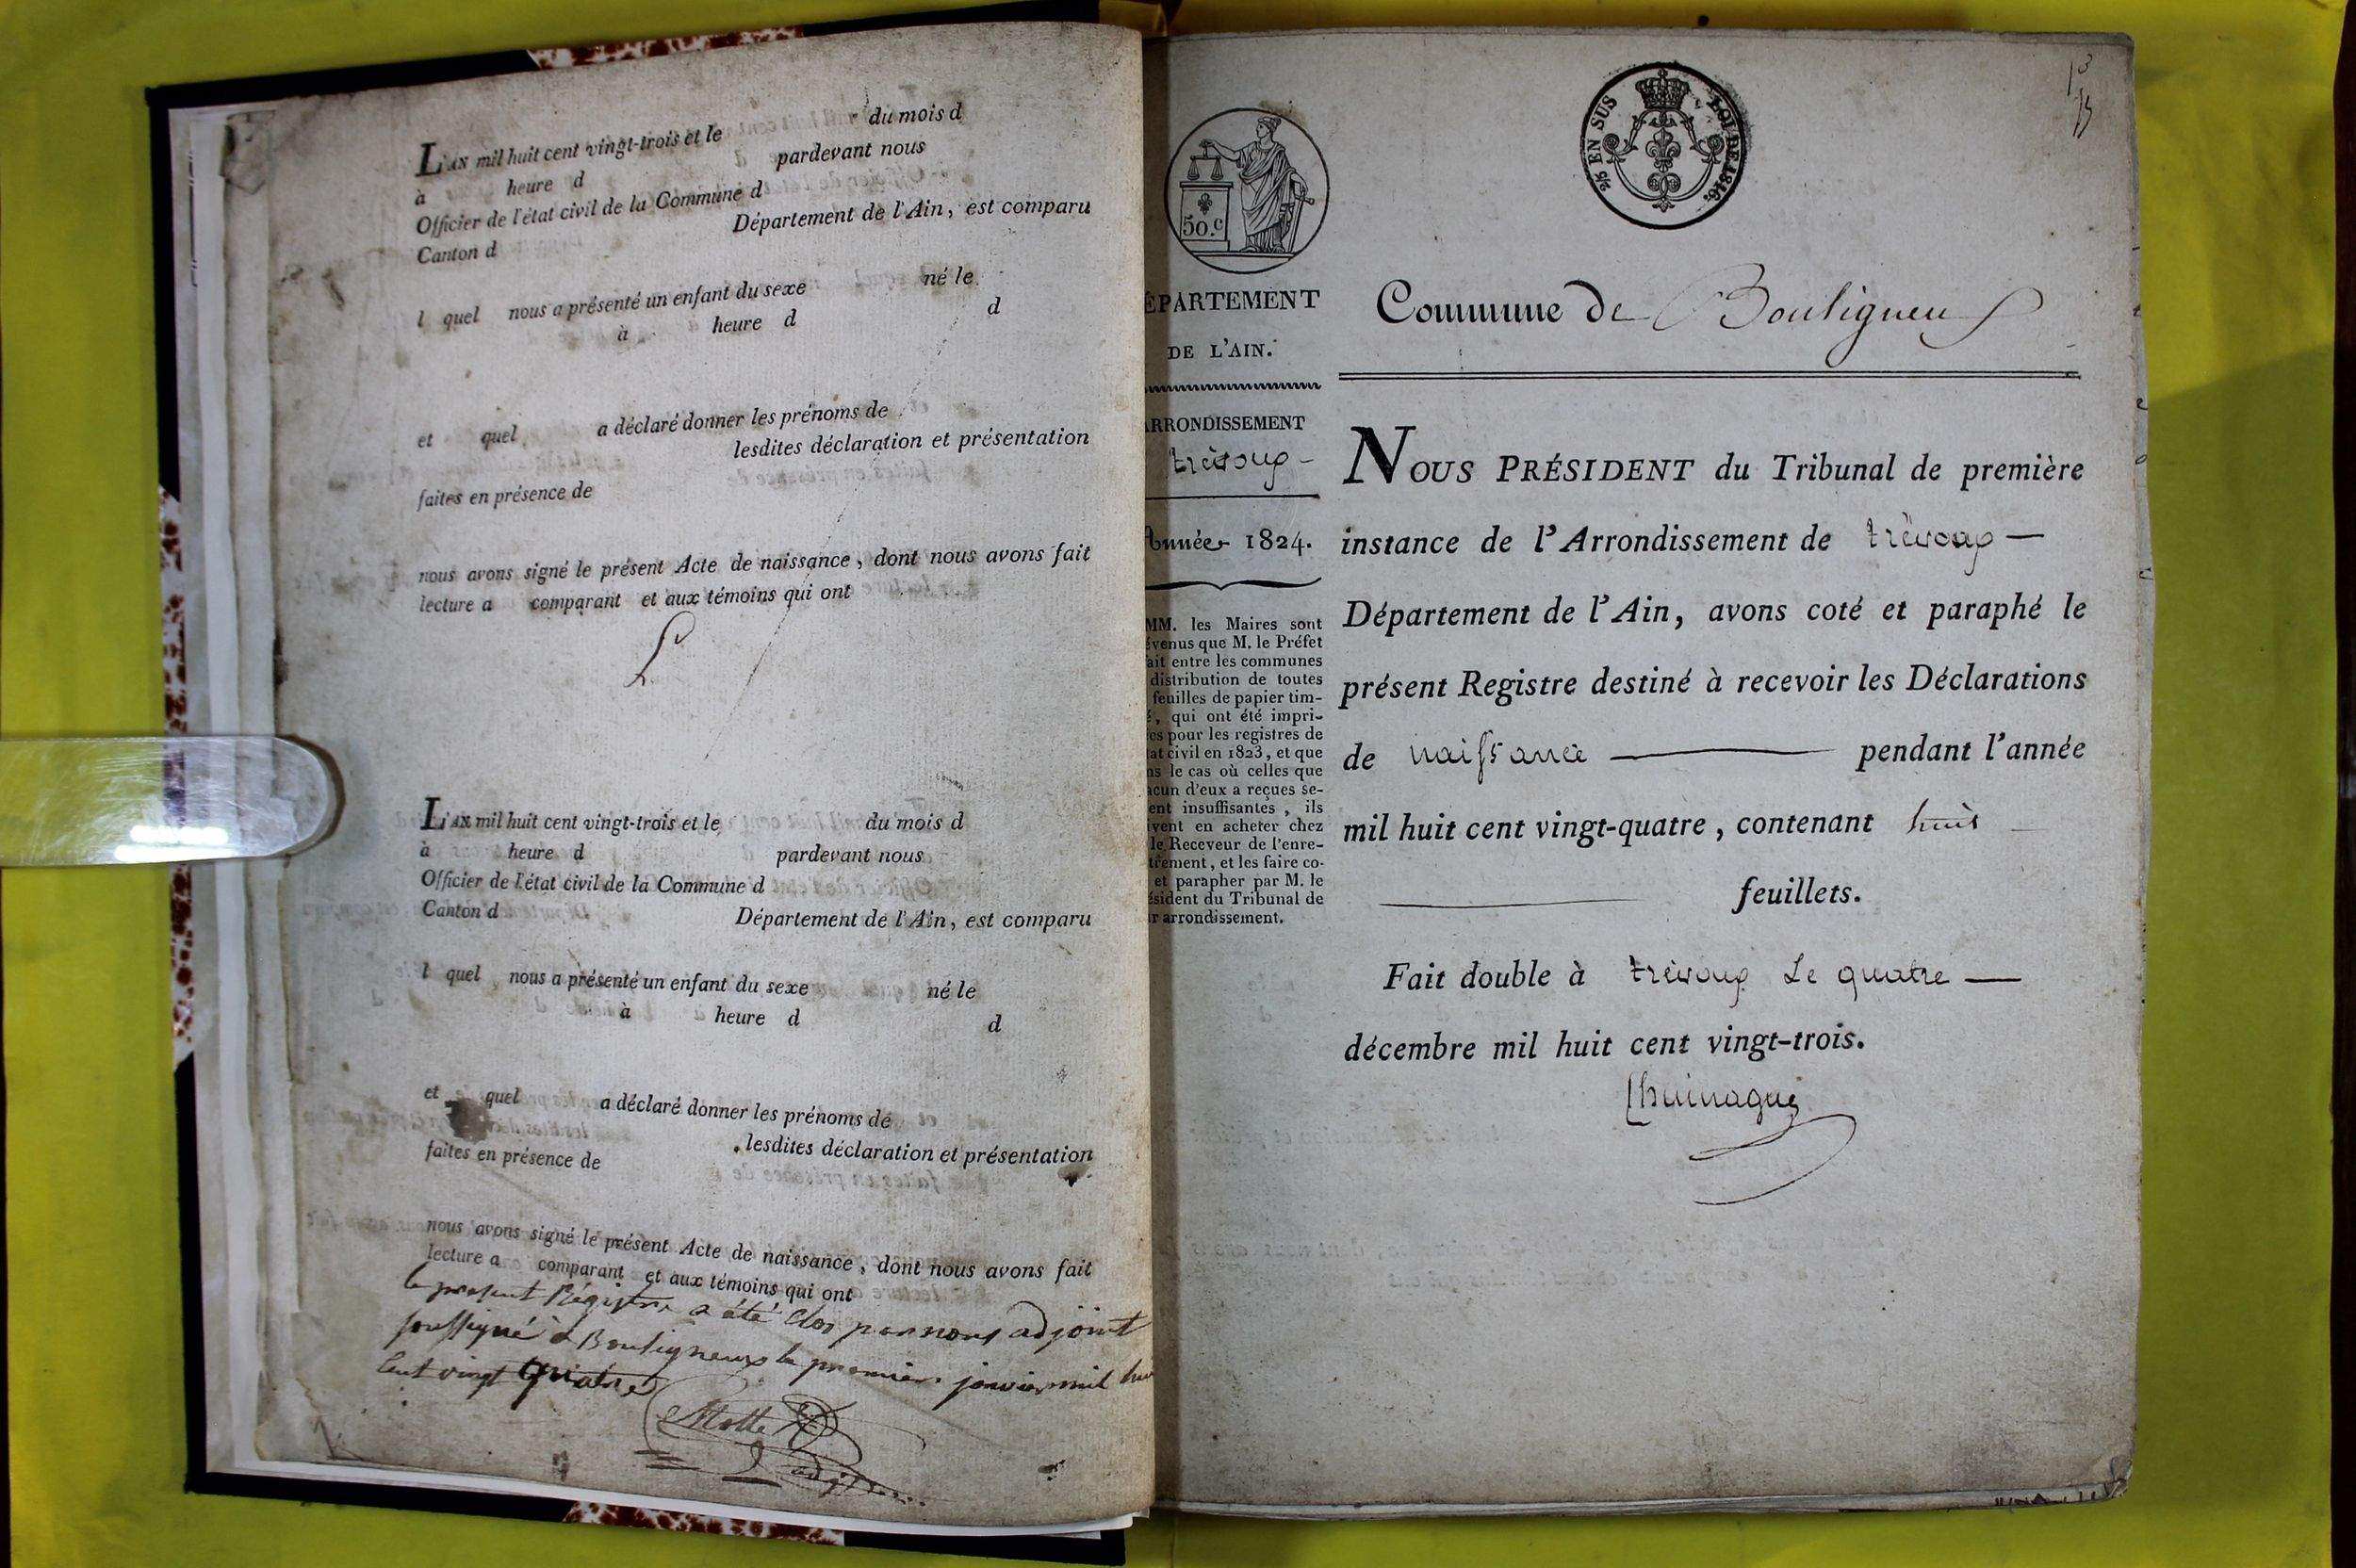 L'AN mil huit cent vingt-trois et le du mois d
à heure d pardevant nous
Officier de l'état civil de la Commune d
Canton d Département de l'Ain, est comparu
l quel nous a présenté un enfant du sexe né le
à heure d d
et quel a déclaré donner les prénoms de
lesdites déclaration et présentation
faites en présence de
nous avons signé le présent Acte de naissance, dont nous avons fait
lecture a comparant et aux témoins qui ont
L'AN mil huit cent vingt-trois et le du mois d
à heure d pardevant nous
Officier de l'état civil de la Commune d
Canton d Département de l'Ain, est comparu
l quel nous a présenté un enfant du sexe né le
à heure d d
et quel a déclaré donner les prénoms de
lesdites déclaration et présentation
faites en présence de
nous avons signé le présent Acte de naissance, dont nous avons fait
lecture a comparant et aux témoins qui ont
le present Régistre a été clos par nous adjoint
soussigné à Bouligneux le premier janvier mil hui
cent vingt quatre
Motte
adjoint
50.c
ÉPARTEMENT
DE L'AIN.
ARRONDISSEMENT
trévoux
Année 1824.
MM. les Maires sont
évenus que M. le Préfet
ait entre les communes
distribution de toutes
feuilles de papier tim-
é, qui ont été impri-
es pour les registres de
at civil en 1823, et que
ns le cas où celles que
acun d'eux a reçues se-
ent insuffisantes, ils
ivent en acheter chez
le Receveur de l'enre-
trement, et les faire co-
et parapher par M. le
ésident du Tribunal de
r arrondissement.
2/5 EN SUS LOI DE 1816.
Commune de Bouligneux
NOUS PRÉSIDENT du Tribunal de première
instance de l'Arrondissement de trévoux —
Département de l'Ain, avons coté et paraphé le
présent Registre destiné à recevoir les Déclarations
de naissance — pendant l'année
mil huit cent vingt-quatre, contenant huit
feuillets.
Fait double à trévoux Le quatre —
décembre mil huit cent vingt-trois.